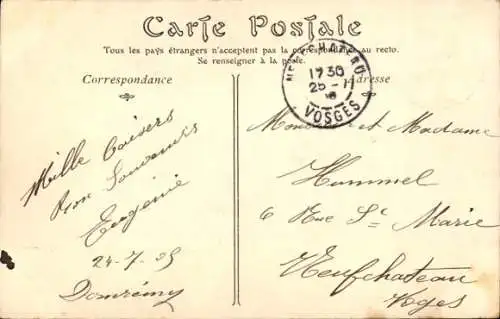 Carte Postale
Tous les pays étrangers n'acceptent pas la correspondance au recto.
Se renseigner à la poste.
Correspondance
Adresse
NEUFCHATEAU
17 30
25 - 11
VOSGES
Mille baisers
Bon Souvenirs
Eugénie
24-7-05
Domrémy
Monsieur et Madame
Hummel
6 Rue Ste Marie
Neufchateau
Vosges